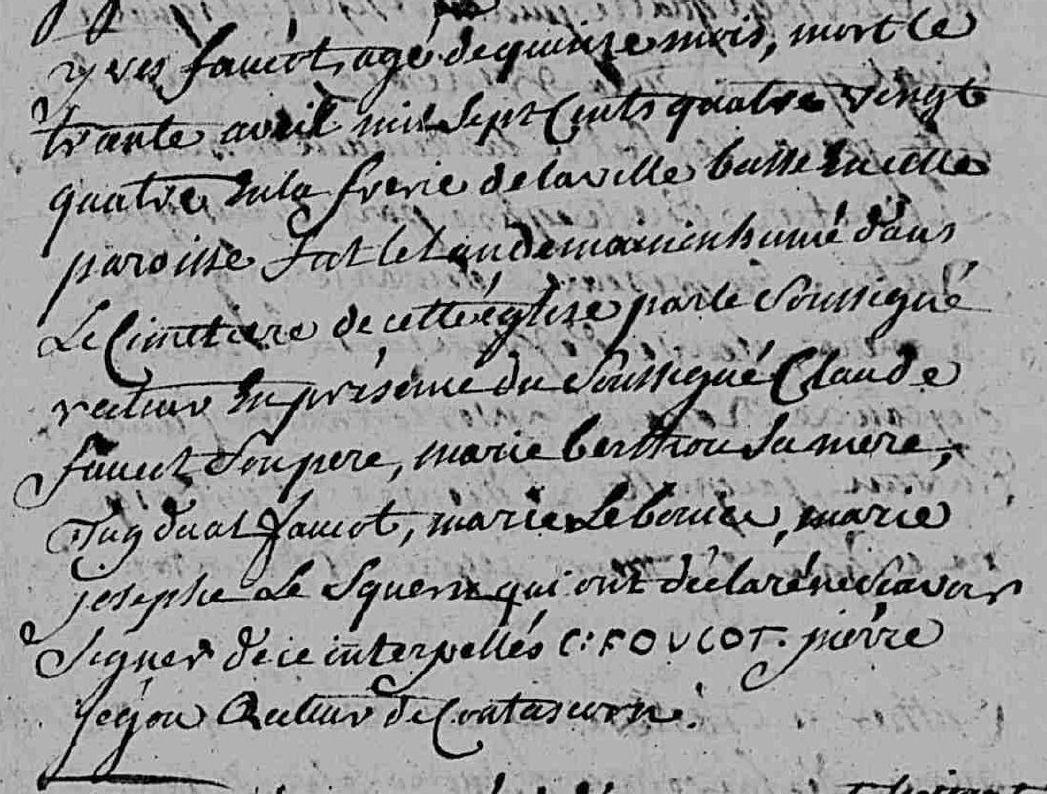 yves faucot, agé de quinze mois, mort le
trante avril mil sept Cents quatre vingt
quatre en la frerie de la ville basse en cette
paroisse fut le landemain inhumé dans
Le Cimetiere de cette église par le Soussigné
recteur En présence du Soussigné Claude
faucot Son pere, marie berthou Sa mere,
Tugduat faucot, marie Le bouice, marie
josephe Le Squern qui ont déclaré ne Scavoir
Signer de ce interpellés C: FOUCOT. pierre
jégou Recteur de Coatascorn.